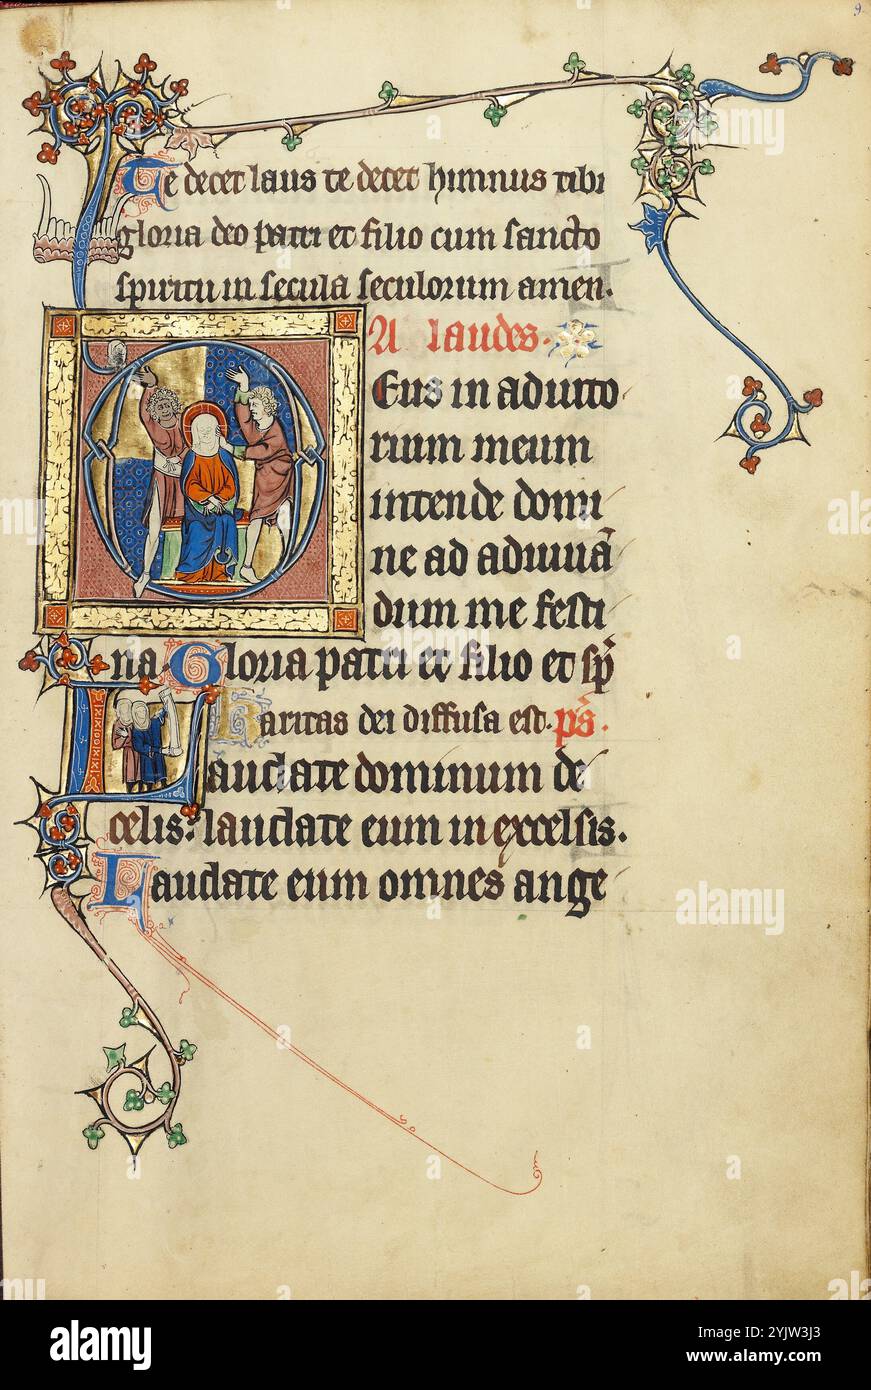 9.
Te decet laus te decet himnus tibi
gloria deo patri et filio cum sancto
spiritu in secula seculorum amen.
A laudes.
Deus in adiuto
rium meum
intende domi
ne ad adiuuā
dum me festi
na Gloria patri et filio et sp̄
Karitas dei diffusa est. p̄s.
Laudate dominum de
celis: laudate eum in excelsis.
Laudate eum omnes ange
alamy
Image ID: 2YJW3J3
www.alamy.com